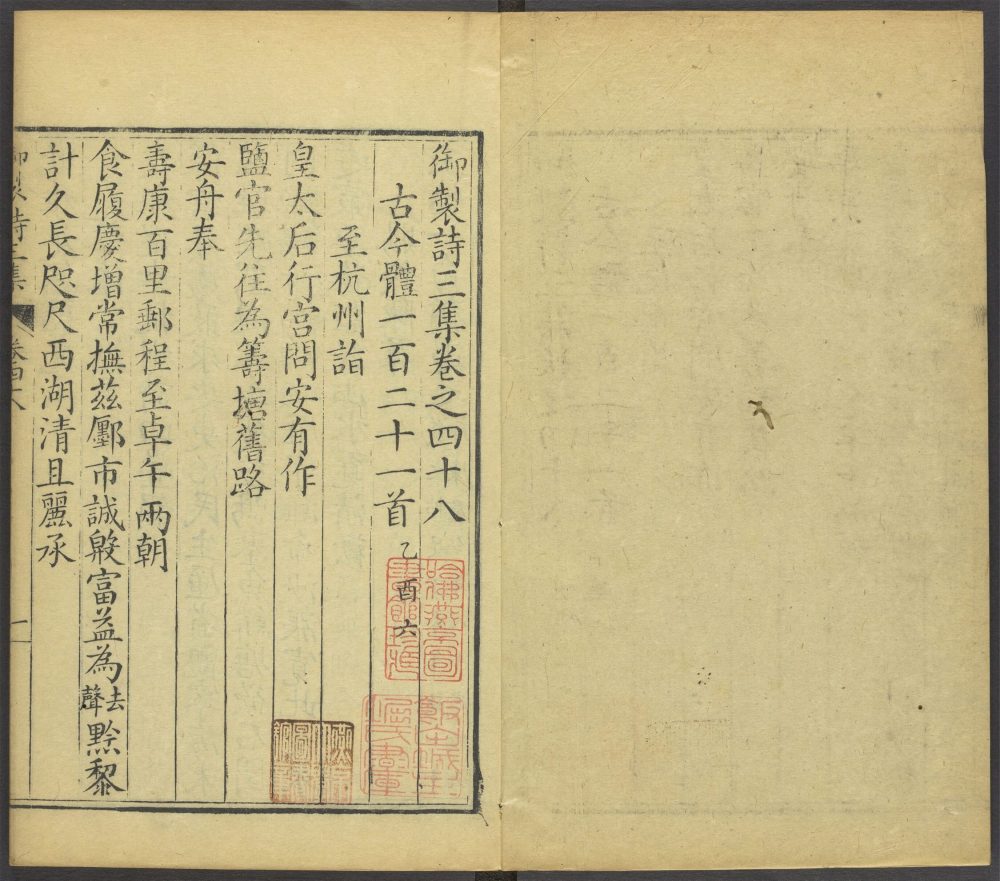 御製詩三集卷之四十八
古今體一百二十一首乙酉六
至杭州詣
皇太后行宮問安有作
鹽官先往為籌塘舊路
安舟奉
壽康百里郵程至卓午兩朝
食履慶增常撫茲鄽市誠殷富益為去聲黔黎
計久長咫尺西湖清且麗承
御製詩三集
卷四十八
一
哈佛燕京圖書館珍藏